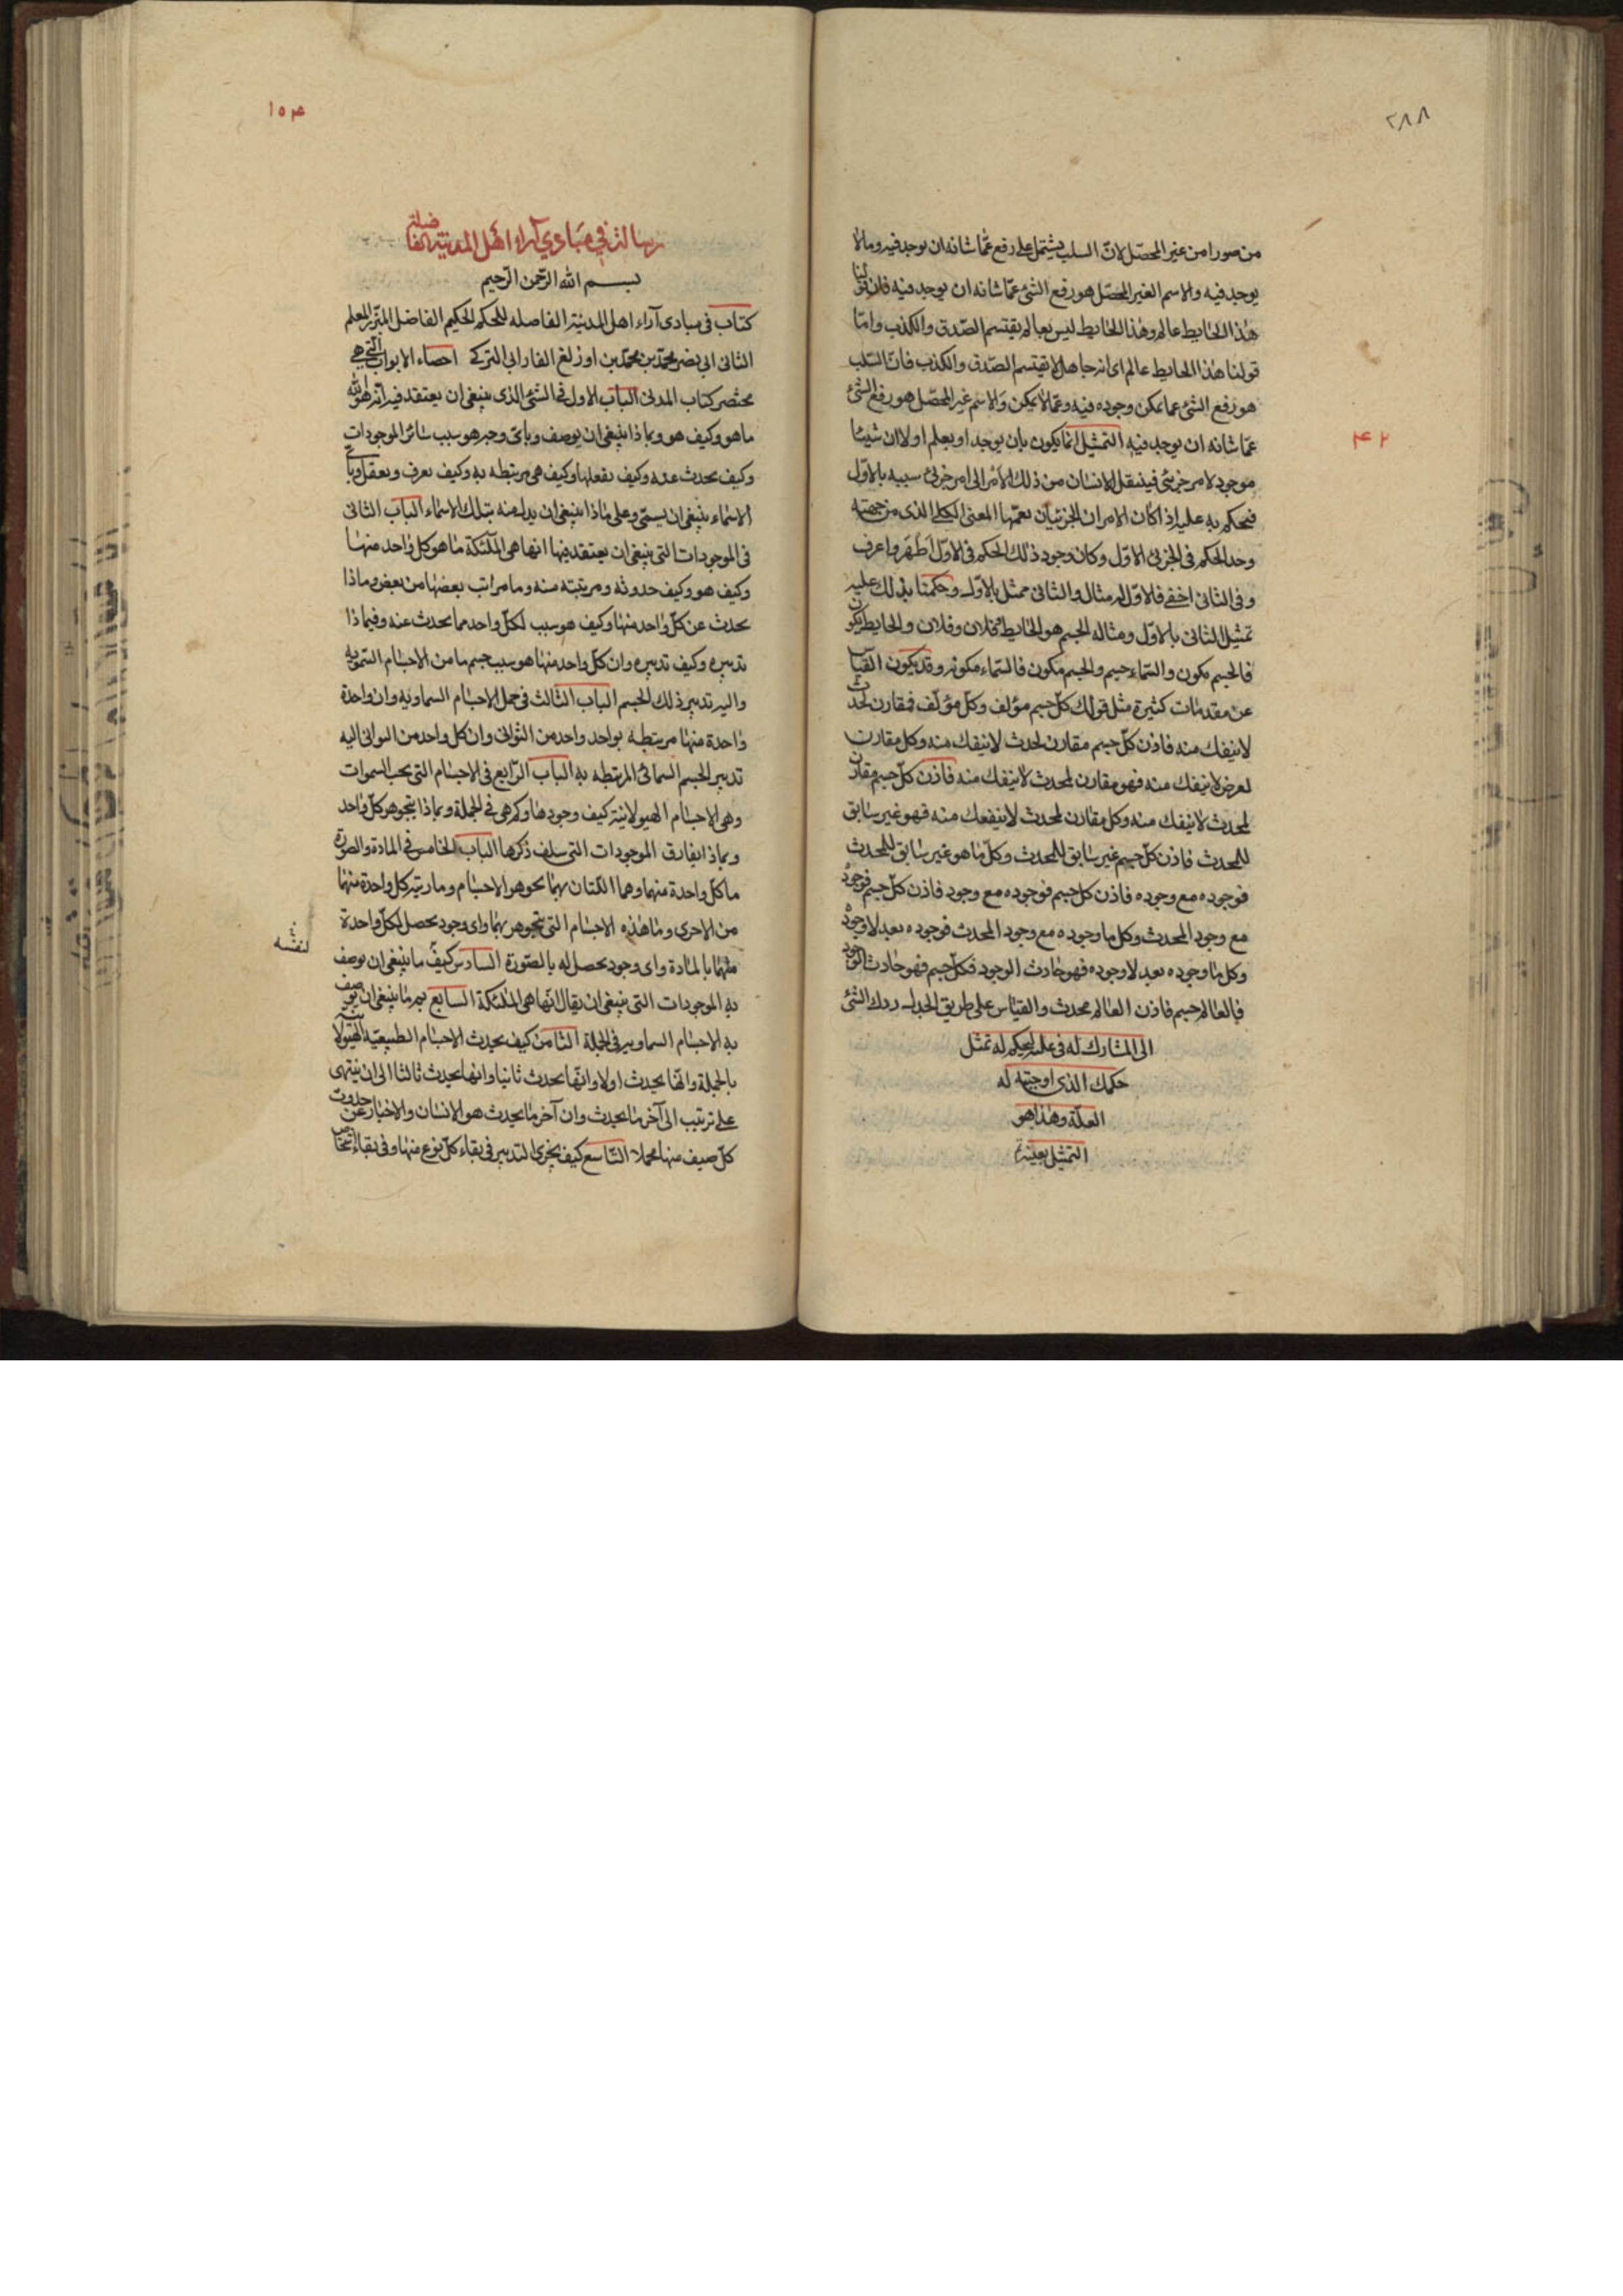 ۲۸۸
من صورا من غير المحصّل لانّ السلب يشتمل على رفع عمّا شانه ان يوجد فيه وما لا
يوجد فيه والاسم الغير المحصّل هو رفع الشئ عمّا شانه ان يوجد فيه فان قولنا
هذا الحايط عالم وهذا الحايط ليس بعالم يقتسم الصّدق والكذب وامّا
قولنا هذا الحايط عالم اى انه جاهل لا يقتسم الصّدق والكذب فانّ السّلب
هو رفع الشئ عما يمكن وجوده فيه وعمّا لا يمكن والاسم غير المحصّل هو رفع الشئ
عمّا شانه ان يوجد فيه التمثيل انّما يكون بان يوجد او يعلم اولا ان شيئا
۴۲
موجود لامر جزئى فينتقل الانسان من ذلك الامر الى امر جزئى شبيه بالاوّل
فيحكم به عليه اذا كان الامران الجزئيان يعمّهما المعنى الكلى الذى من جهته
وجد الحكم فى الجزئى الاوّل وكان وجود ذلك الحكم فى الاوّل اظهر واعرف
وفى الثانى اخفى فالاوّل له مثال والثانى ممثل بالاوّل وحكمنا بذلك عليه
تمثيل الثانى بالاوّل ومثاله الجسم هو الحايط كفلان وفلان والحايط يكون
فالجسم مكون والسّماء جسم والجسم مكون فالسّماء مكونه وقد يكون القياس
عن مقدمات كثيرة مثل قولك كلّ جسم مؤلف وكلّ مؤلّف فمقارن لحدث
لا ينفك منه فاذن كلّ جسم مقارن لحدث لا ينفك منه وكل مقارن
لعرض لا ينفك منه فهو مقارن لمحدث لا ينفك منه فاذن كلّ جسم مقارن
لمحدث لا ينفك منه وكل مقارن لمحدث لا ينفك منه فهو غير سابق
للمحدث فاذن كلّ جسم غير سابق للمحدث وكلّ ما هو غير سابق للمحدث
فوجوده مع وجوده فاذن كل جسم فوجوده مع وجود فاذن كلّ جسم فوجوده
مع وجود المحدث وكل ما وجوده مع وجود المحدث فوجوده بعد لا وجوده
وكل ما وجوده بعد لا وجوده فهو حادث الوجود فكلّ جسم فهو حادث الوجود
فالعالم جسم فاذن العالم محدث والقياس على طريق الجدل ردك الشئ
الى المشارك له فى علته ليحكم له بمثل
حكمك الذى اوجبته له
العلّة وهذا هو
التمثيل بعينه
۱۵۴
رسالة في مبادي آراء اهل المدينة الفاضلة
بسم الله الرّحمن الرّحيم
كتاب فى مبادى آراء اهل المدينة الفاضله للحكيم الفاضل المبرّز المعلم
الثانى ابى نصر محمّد بن محمّد بن اوزلغ الفارابى التركى احصاء الابواب التى هى
مختصر كتاب المدنى الباب الاول فى الشئ الذى ينبغى ان يعتقد فيه انّه هو الله
ما هو وكيف هو وبماذا ينبغى ان يوصف وباىّ وجه هو سبب سائر الموجودات
وكيف يحدث عنه وكيف يفعلها وكيف هى مرتبطه به وكيف يعرف ويعقل وباى
الاسماء ينبغى ان يسمّى وعلى ماذا ينبغى ان يدل منه بتلك الاسماء الباب الثانى
فى الموجودات التى ينبغى ان يعتقد فيها انها هى الملئكة ما هو كل واحد منها
وكيف هو وكيف حدوثه ومرتبته منه وما مراتب بعضها من بعض وماذا
يحدث عن كلّ واحد منها وكيف هو سبب لكلّ واحد مما يحدث عنه وفيما ذا
تدبيره وكيف تدبيره وان كلّ واحد منها هو سبب جسم ما من الاجسام السّمويه
واليه تدبير ذلك الجسم الباب الثالث فى جمل الاجسام السماويه وان واحدة
واحدة منها مرتبطة بواحد واحد من الثوانى وان كل واحد من الثوانى اليه
تدبير الجسم السمائى المرتبطه به الباب الرّابع فى الاجسام التى تحت السموات
وهى الاجسام الهيولانية كيف وجودها وكم هى فى الجملة وبماذا يتجوهر كلّ واحد
وبماذا يفارق الموجودات التى سلف ذكرها الباب الخامس فى المادة والصورة
ما كلّ واحدة منهما وهما اللّتان بهما يتجوهر الاجسام وما رتبة كل واحدة منهما
من الاخرى وما هذه الاجسام التى يتجوهر بهما واى وجود يحصل لكلّ واحدة
لنفسه
منهما بالمادة واى وجود يحصل له بالصّورة السادس كيف ما ينبغى ان يوصف
به الموجودات التى ينبغى ان يقال انّها هى الملئكة السابع بم ما ينبغى ان يوصف
به الاجسام السماويه فى الجملة الثامن كيف يحدث الاجسام الطبيعيّة الهيولا
بالجملة وانّها يحدث اولا وانّها يحدث ثانيا وانها يحدث ثالثا الى ان ينتهى
على ترتيب الى آخر ما يحدث وان آخر ما يحدث هو الانسان والاخبار عن حدوث
كلّ صنف منها مجملا التّاسع كيف يجرى التدبير فى بقاء كلّ نوع منها وفى بقاء اشخاص